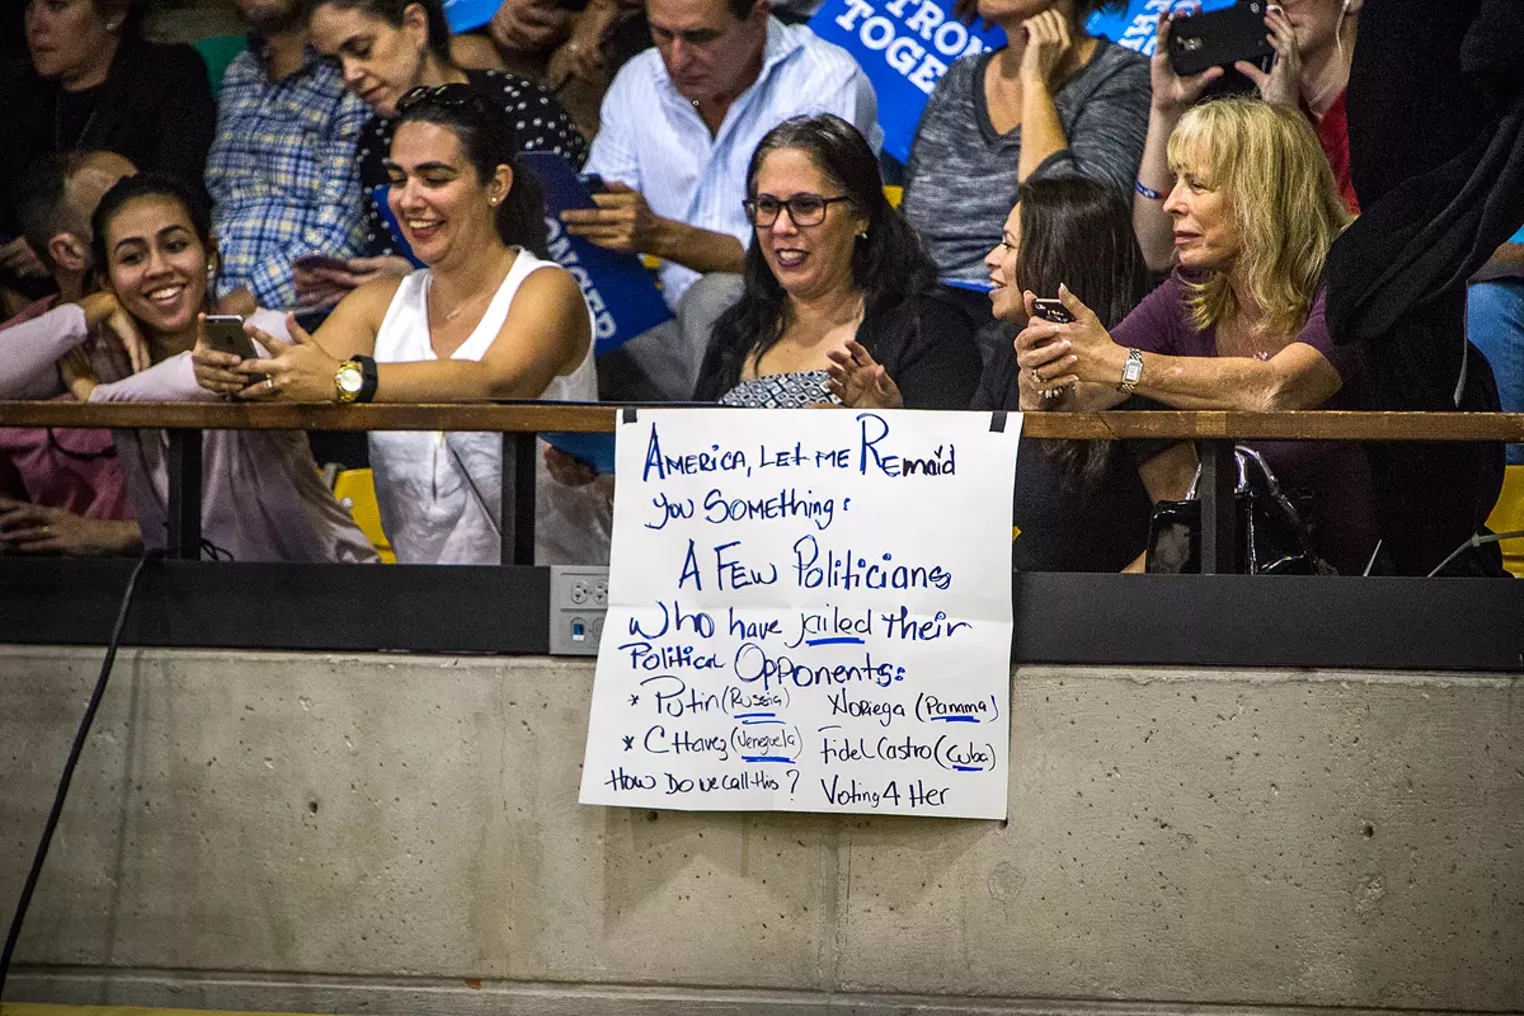 STRONGER
TOGETHER
ONGER
AMERICA, Let ME REmaid
you SOMEthing:
A FEW Politicians
Who have jailed their
Political Opponents:
* Putin (Russia) Noriega (Panama)
* CHavez (Venezuela) Fidel Castro (Cuba)
How Do we call this? Voting 4 Her